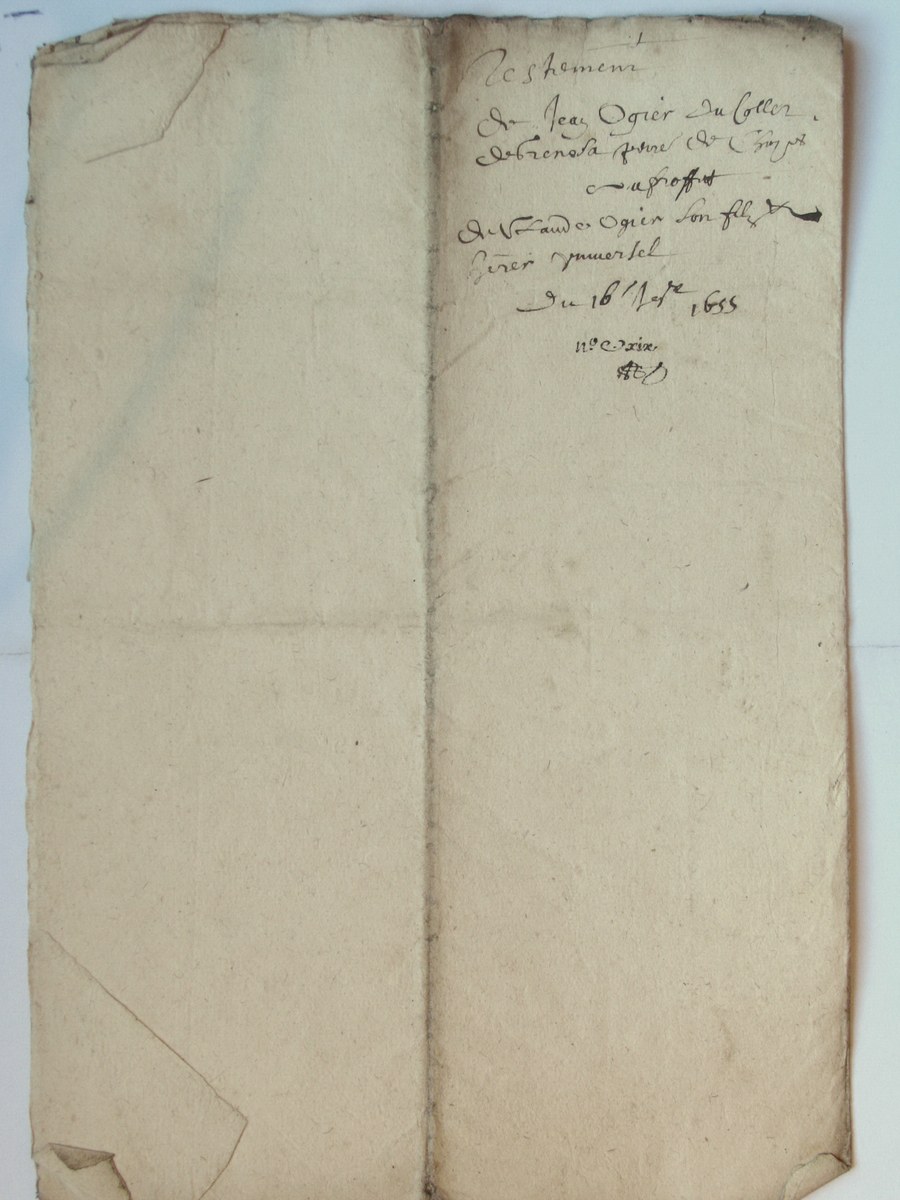 Testement
de Jean Ogier du Collet
de
au proffit
de Claude Ogier son filz &
herer universel
Du 16e 1655
no Cxix